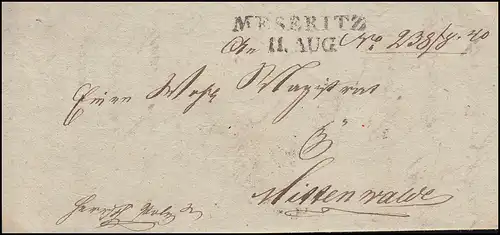 MESERITZ
11. AUG. No 238/8. 40
Einen Wohl Magistrat
zu
Mittenwalde